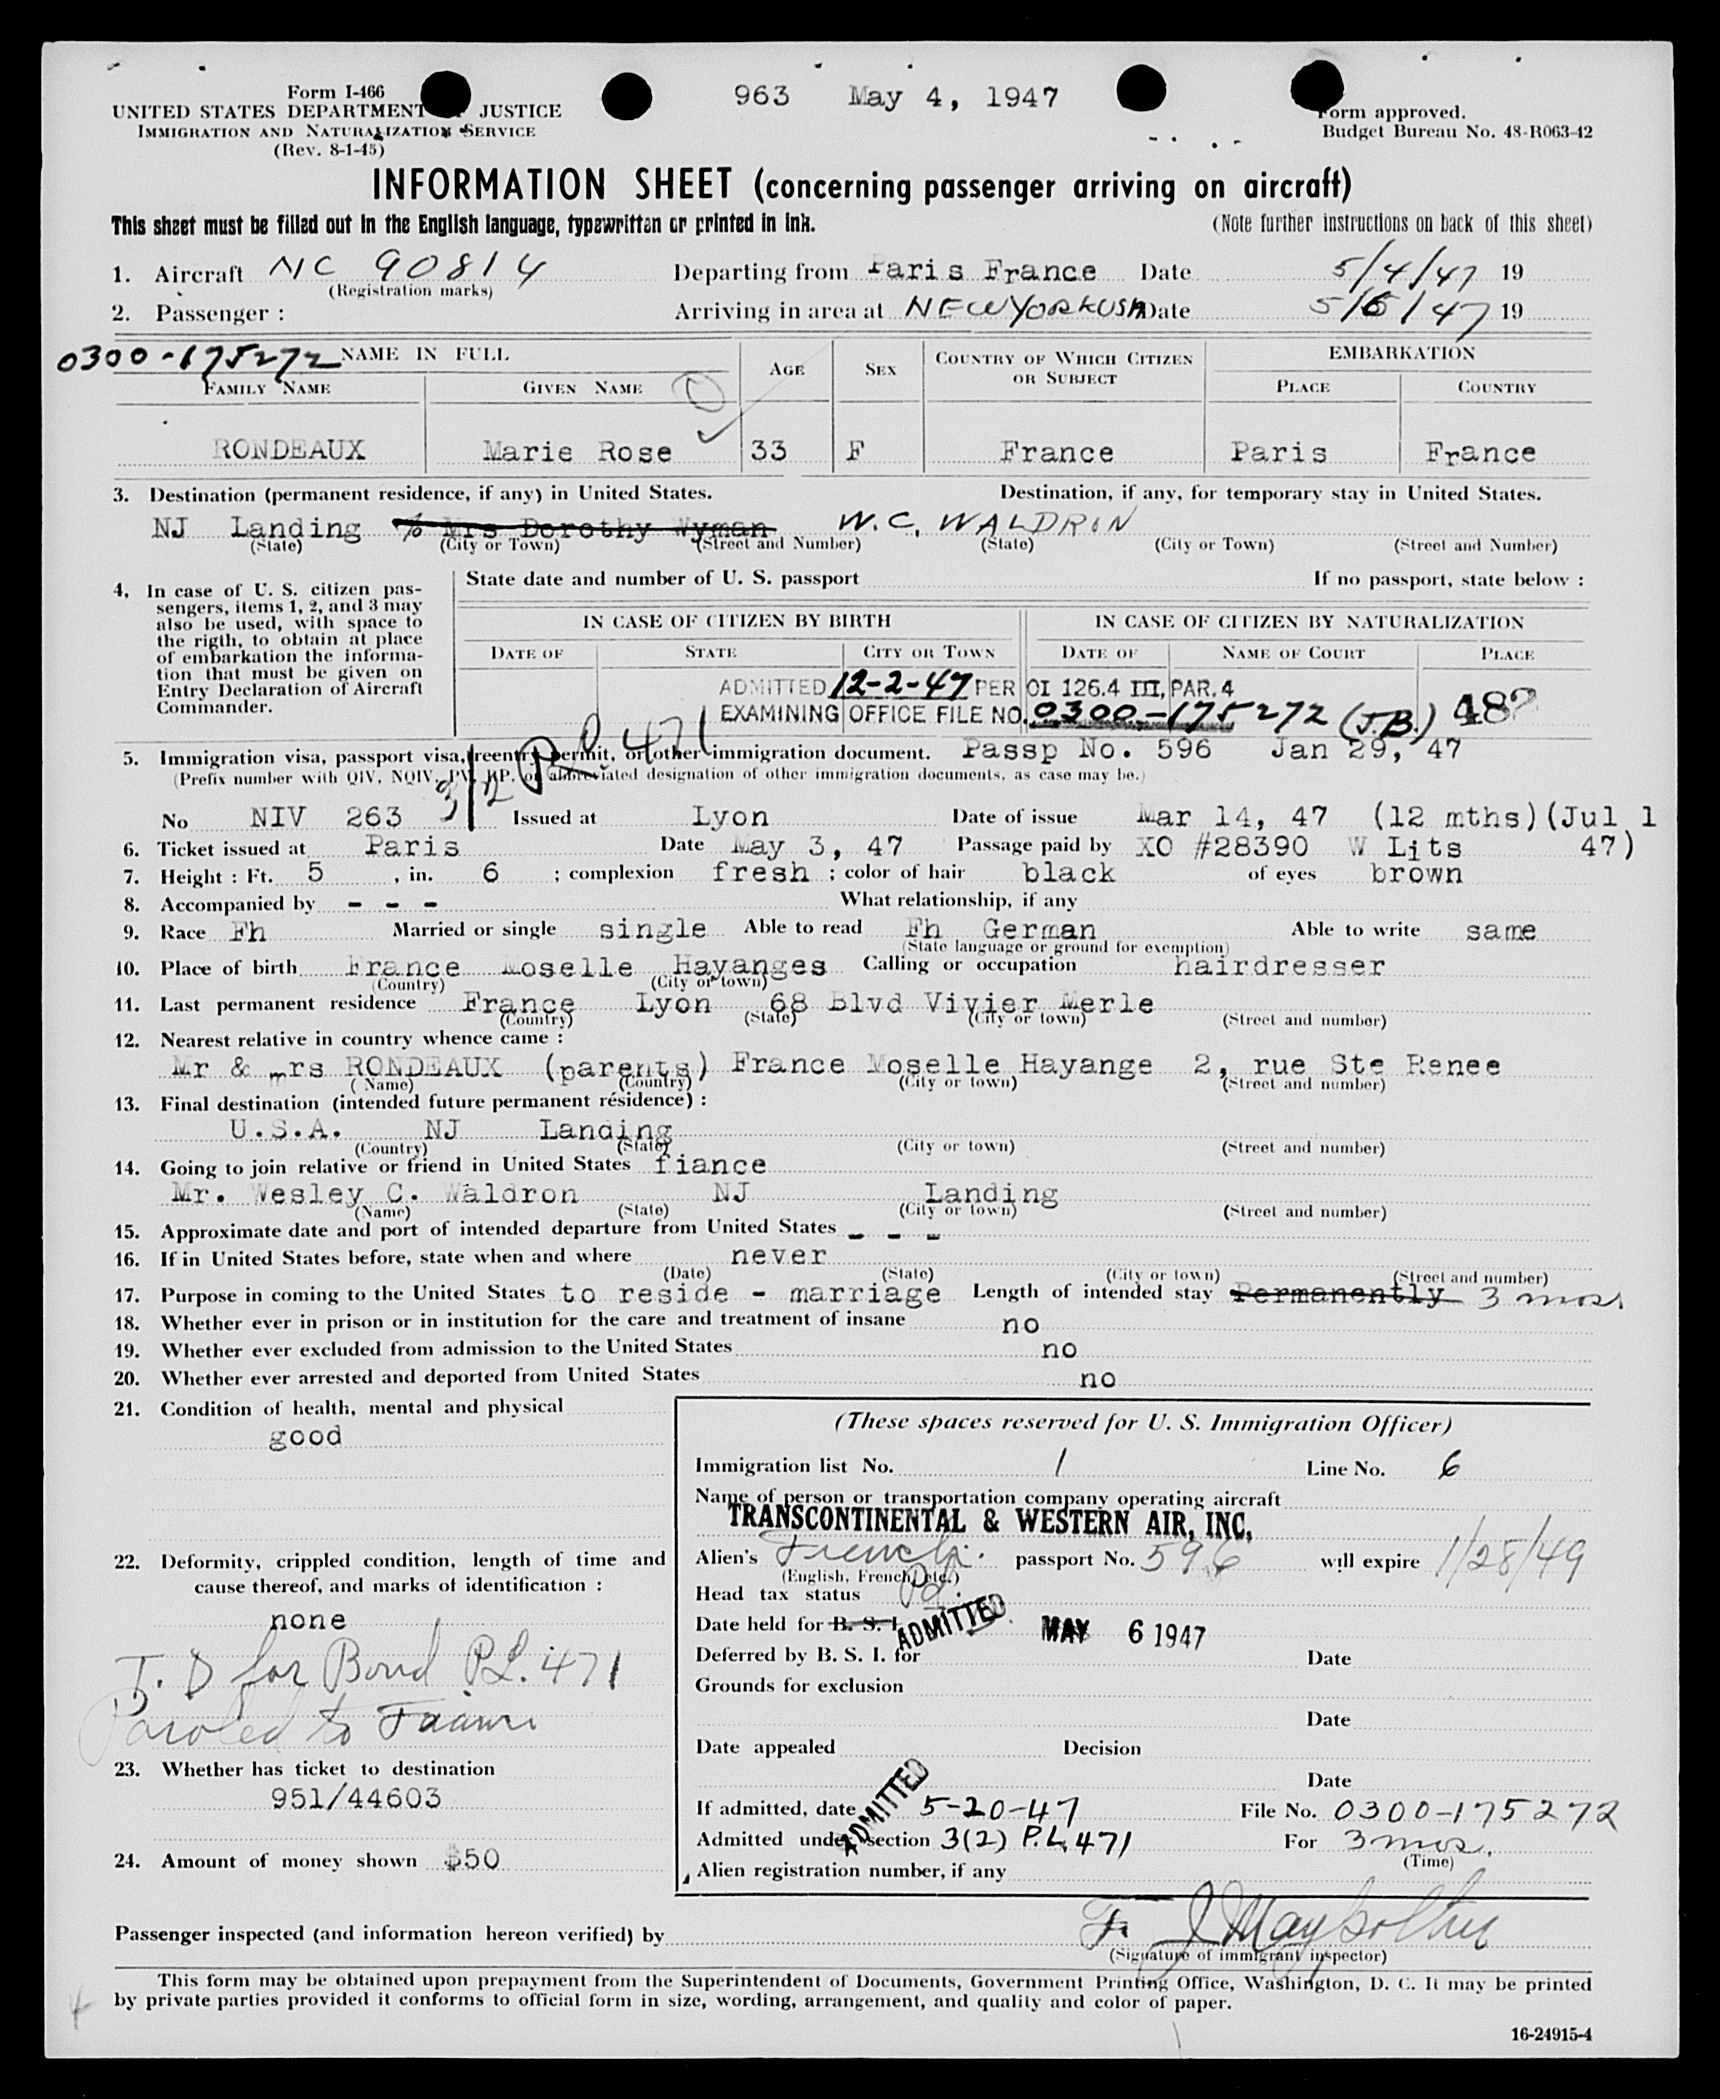 Form I-466
UNITED STATES DEPARTMENT JUSTICE
IMMIGRATION AND NATURALIZATION SERVICE
(Rev. 8-1-45)
963 May 4, 1947
Form approved.
Budget Bureau No. 48-R063-42
INFORMATION SHEET (concerning passenger arriving on aircraft)
This sheet must be filled out in the English language, typewritten or printed in ink.
(Note further instructions on back of this sheet)
1. Aircraft NC 90814 Departing from Paris France Date 5/4/47 19
(Registration marks)
2. Passenger : Arriving in area at NEW YORK USA Date 5/6/47 19
0300-175272 NAME IN FULL
FAMILY NAME GIVEN NAME AGE SEX COUNTRY OF WHICH CITIZEN OR SUBJECT EMBARKATION PLACE COUNTRY
RONDEAUX Marie Rose 33 F France Paris France
3. Destination (permanent residence, if any) in United States. Destination, if any, for temporary stay in United States.
NJ Landing % Mrs Dorothy Wyman W.C. WALDRON
(State) (City or Town) (Street and Number) (State) (City or Town) (Street and Number)
4. In case of U. S. citizen pas-
sengers, items 1, 2, and 3 may
also be used, with space to
the rigth, to obtain at place
of embarkation the informa-
tion that must be given on
Entry Declaration of Aircraft
Commander.
State date and number of U. S. passport If no passport, state below :
IN CASE OF CITIZEN BY BIRTH IN CASE OF CITIZEN BY NATURALIZATION
DATE OF STATE CITY OR TOWN DATE OF NAME OF COURT PLACE
ADMITTED 12-2-47 PER OI 126.4 III, PAR. 4
EXAMINING OFFICE FILE NO. 0300-175272 (J.B.) 482
5. Immigration visa, passport visa, reentry permit, or other immigration document. Passp No. 596 Jan 29, 47
(Prefix number with QIV, NQIV, PV, RP, or abbreviated designation of other immigration documents, as case may be.)
3/2 PL 471
No NIV 263 Issued at Lyon Date of issue Mar 14, 47 (12 mths)(Jul 1
6. Ticket issued at Paris Date May 3, 47 Passage paid by XO #28390 W Lits 47)
7. Height : Ft. 5 , in. 6 ; complexion fresh ; color of hair black of eyes brown
8. Accompanied by - - - What relationship, if any
9. Race Fh Married or single single Able to read Fh German Able to write same
(State language or ground for exemption)
10. Place of birth France Moselle Hayanges Calling or occupation hairdresser
(Country) (City or town)
11. Last permanent residence France Lyon 68 Blvd Vivier Merle
(Country) (State) (City or town) (Street and number)
12. Nearest relative in country whence came :
Mr & mrs RONDEAUX (parents) France Moselle Hayange 2, rue Ste Renee
(Name) (Country) (City or town) (Street and number)
13. Final destination (intended future permanent résidence) :
U.S.A. NJ Landing
(Country) (State) (City or town) (Street and number)
14. Going to join relative or friend in United States fiance
Mr. Wesley C. Waldron NJ Landing
(Name) (State) (City or town) (Street and number)
15. Approximate date and port of intended departure from United States - - -
16. If in United States before, state when and where never
(Date) (State) (City or town) (Street and number)
17. Purpose in coming to the United States to reside - marriage Length of intended stay Permanently 3 mos.
18. Whether ever in prison or in institution for the care and treatment of insane no
19. Whether ever excluded from admission to the United States no
20. Whether ever arrested and deported from United States no
21. Condition of health, mental and physical
good
22. Deformity, crippled condition, length of time and
cause thereof, and marks of identification :
none
T. D for Bond P.L. 471
Paroled to
23. Whether has ticket to destination
951/44603
24. Amount of money shown $50
(These spaces reserved for U. S. Immigration Officer)
Immigration list No. 1 Line No. 6
Name of person or transportation company operating aircraft
TRANSCONTINENTAL & WESTERN AIR, INC.
Alien's French. passport No. 596 will expire 1/28/49
(English, French, etc.)
Head tax status Pd.
Date held for B. S. I. ADMITTED MAY 6 1947
Deferred by B. S. I. for Date
Grounds for exclusion
Date
Date appealed Decision
Date
ADMITTED
If admitted, date 5-20-47 File No. 0300-175272
Admitted under section 3(2) P.L. 471 For 3 mos.
(Time)
Alien registration number, if any
Passenger inspected (and information hereon verified) by
(Signature of immigrant inspector)
This form may be obtained upon prepayment from the Superintendent of Documents, Government Printing Office, Washington, D. C. It may be printed
by private parties provided it conforms to official form in size, wording, arrangement, and quality and color of paper.
16-24915-4